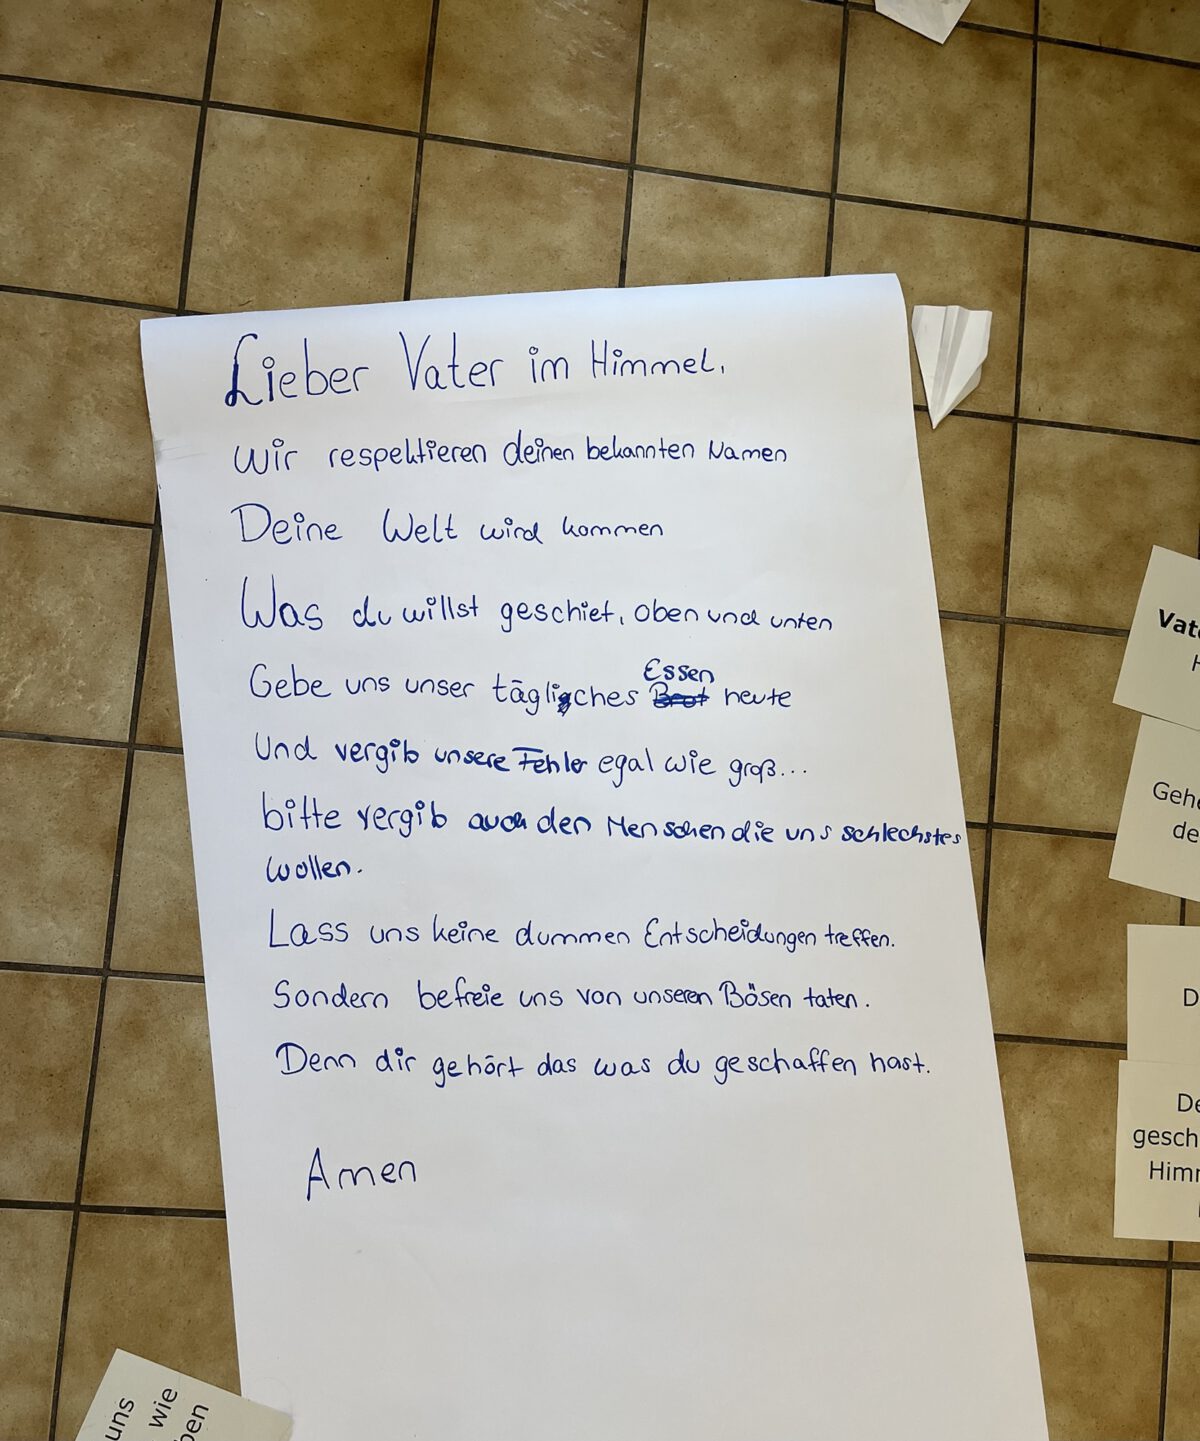 Lieber Vater im Himmel,
wir respektieren deinen bekannten Namen
Deine Welt wird kommen
Was du willst geschiet, oben und unten
Gebe uns unser tägliches Brot Essen heute
Und vergib unsere Fehler egal wie groß...
bitte vergib auch den Menschen die uns schlechstes
wollen.
Lass uns keine dummen Entscheidungen treffen.
Sondern befreie uns von unseren Bösen taten.
Denn dir gehört das was du geschaffen hast.
Amen
Vat
H
Gehe
de
D
De
gesch
Himm
uns
wie
ben